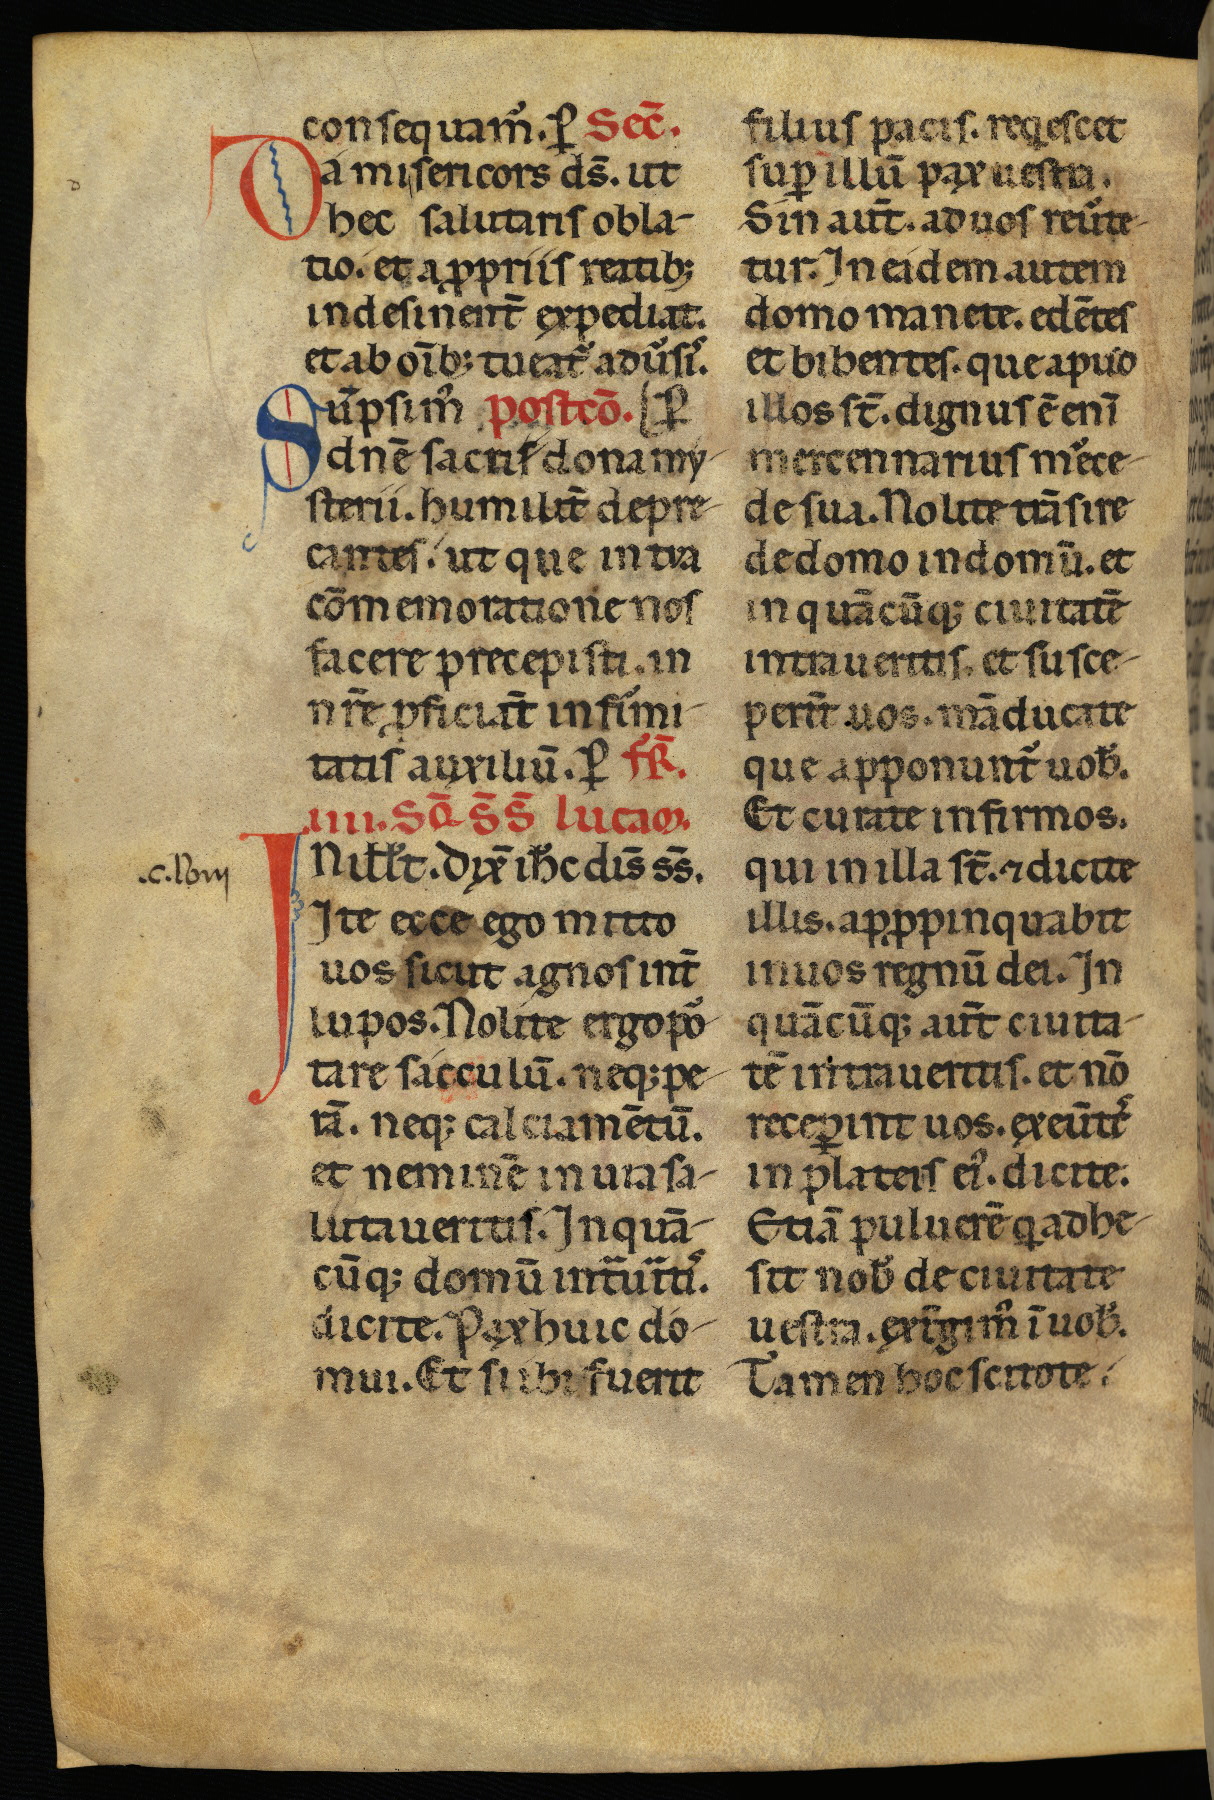 consequam᷑. ꝑ Sec̄.
Da misericors ds̄. ut
hec salutaris obla-
tio. et a ꝓpriis reatib;
indesinent̄ expediat.
et ab oīb; tueat᷑ adu᷑si᷑.
Su̅psim᷑ postcō. ꝑ
dn̄e sacris dona my-
sterii. humilit̄ depre-
cantes. ut que in tua
cōmemoratione nos
facere precepisti. in
nr̄e ꝓficiat̄ infi᷑mi-
tatis auxiliū. ꝑ fr̄.
.iiii. Sq̄ s̄ s̄ lucaꝝ.
.c. lxviij
INiƚƚt. Dix̄ ih̄c dis̄ ss̄.
Ite ecce ego mitto
uos sicut agnos int̄
lupos. Nolite ergo po᷑-
tare sacculū. neq; pe-
rā. neq; calciamētū.
et neminē in uia sa-
lutaueritis. In quā-
cūq; domū int᷑ue᷑iti᷑.
dicite. Pax huic do-
mui. Et si ibi fuerit
filius pacis. reqescet
suꝑ illū pax uestra.
Sin aut̄. ad uos reu᷑te-
tur. In eidem autem
domo manete. edētes
et bibentes. que apud
illos st̄. dignus ē enī
mercennarius m᷑ce-
de sua. Nolite trāsire
de domo in domū. et
in quācūq; ciuitatē
intraueritis. et susce-
perit̄ uos. māducate
que apponunt᷑ uob̄.
Et curate infirmos.
qui in illa st̄. ⁊ dicite
illis. apꝓpinquabit
in uos regnū dei. In
quācūq; aut̄ ciuita-
tē intraueritis. et nō
receꝑint uos. exeūte᷑
in plateis ei᷑. dicite.
Etiā puluerē q adhe-
sit nob̄ de ciuitate
uestra. ext̄gim᷑ ī uob̄.
Tamen hoc scitote.